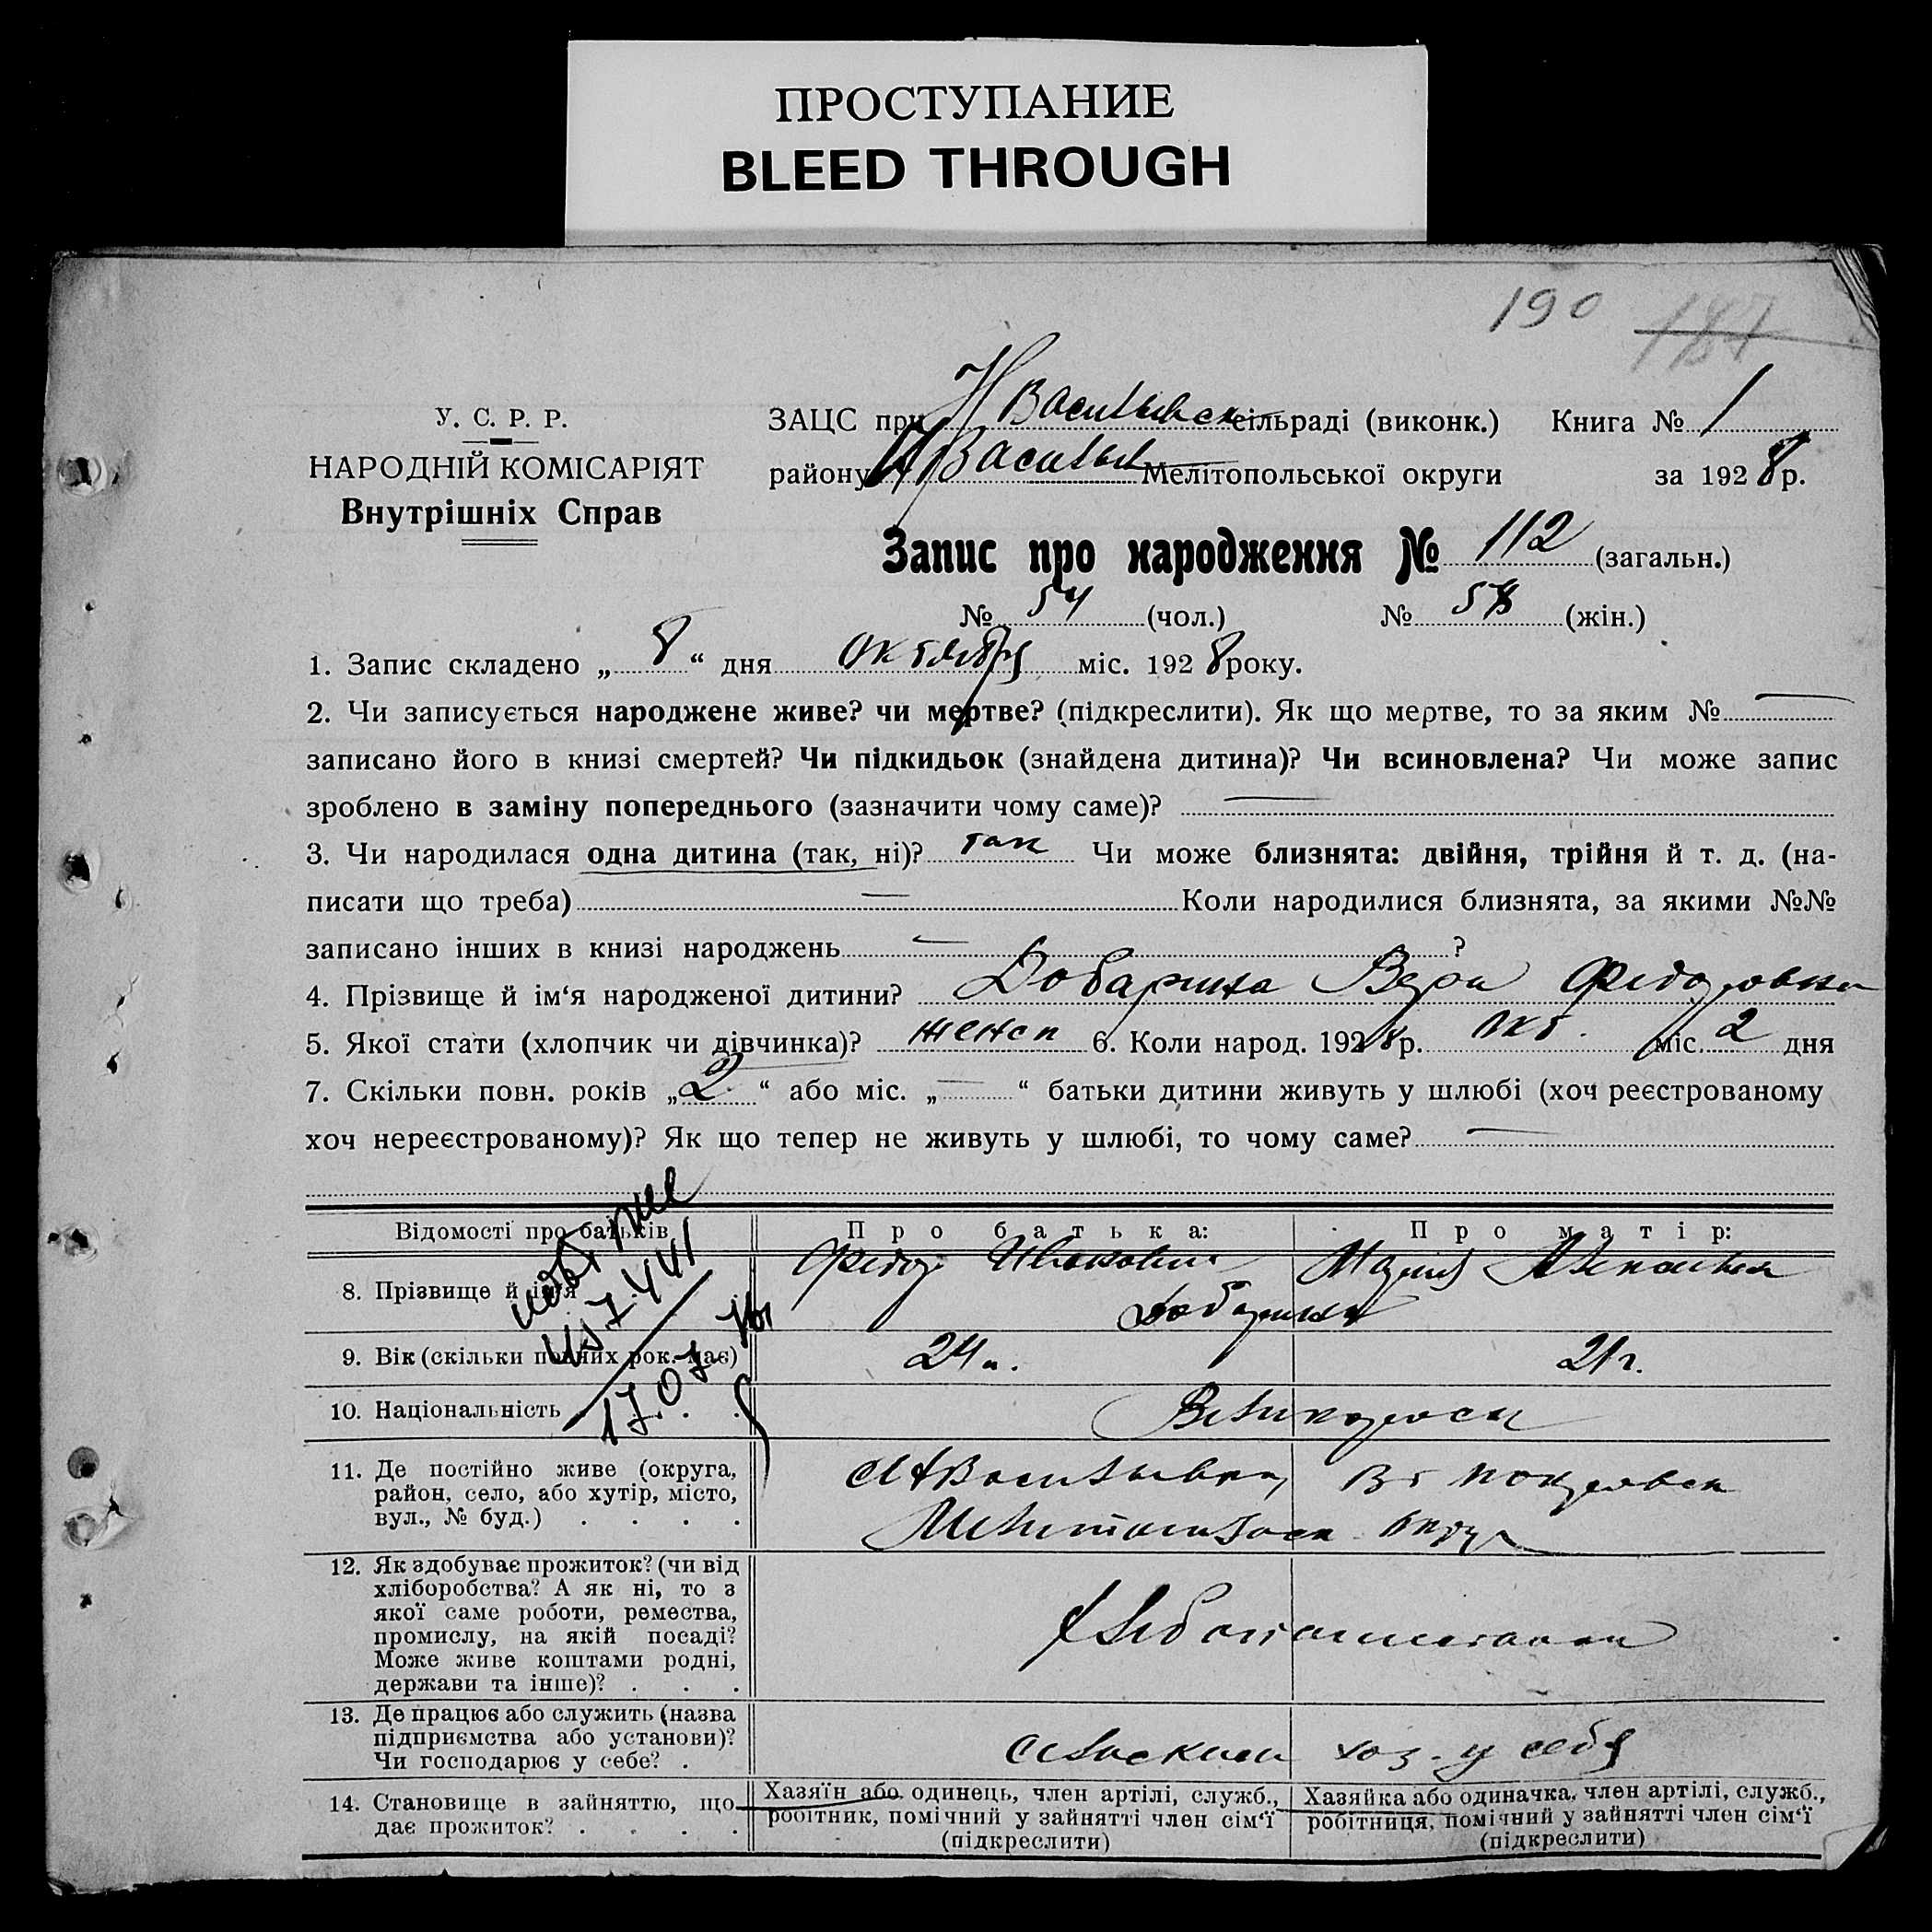 ПРОСТУПАНИЕ
BLEED THROUGH
190 187
У. С. Р. Р.
НАРОДНІЙ КОМІСАРІЯТ
Внутрішніх Справ
ЗАЦС при Н Васильевск сільраді (виконк.) Книга № 1
району Н Васильев Мелітопольської округи за 1928 р.
Запис про народження № 112 (загальн.)
№ 54 (чол.) № 58 (жін.)
1. Запис складено „ 8 “ дня октября міс. 1928 року.
2. Чи записується народжене живе? чи мертве? (підкреслити). Як що мертве, то за яким № —
записано його в книзі смертей? Чи підкидьок (знайдена дитина)? Чи всиновлена? Чи може запис
зроблено в заміну попереднього (зазначити чому саме)? —
3. Чи народилася одна дитина (так, ні)? так Чи може близнята: двійня, трійня й т. д. (на-
писати що треба) — Коли народилися близнята, за якими №№
записано інших в книзі народжень — ?
4. Прізвище й ім‘я народженої дитини? Добарина Вера Федоровна
5. Якої стати (хлопчик чи дівчинка)? женск 6. Коли народ. 1928 р. окт. міс. 2 дня
7. Скільки повн. років „ 2 “ або міс. „ — “ батьки дитини живуть у шлюбі (хоч реєстрованому
хоч нереєстрованому)? Як що тепер не живуть у шлюбі, то чому саме? —
Відомості про батьків Про батька: Про матір:
8. Прізвище й ім‘я Федор Мария
Добарины
9. Вік (скільки повних рок. має) 24 21 г.
10. Національність Великороссы
11. Де постійно живе (округа,
район, село, або хутір, місто,
вул., № буд.) . . . .
с Н Васильевка, В т Покровск
Мелитопольск округ
12. Як здобуває прожиток? (чи від
хліборобства? А як ні, то з
якої саме роботи, ремества,
промислу, на якій посаді?
Може живе коштами родні,
держави та інше)? . . .
13. Де працює або служить (назва
підприємства або установи)?
Чи господарює у себе? .
сельским хоз-у себя
14. Становище в зайняттю, що
дає прожиток? . . . .
Хазяїн або одинець, член артілі, служб.,
робітник, помічний у зайнятті член сім‘ї
(підкреслити)
Хазяйка або одиначка, член артілі, служб.,
робітниця, помічний у зайнятті член сім‘ї
(підкреслити)